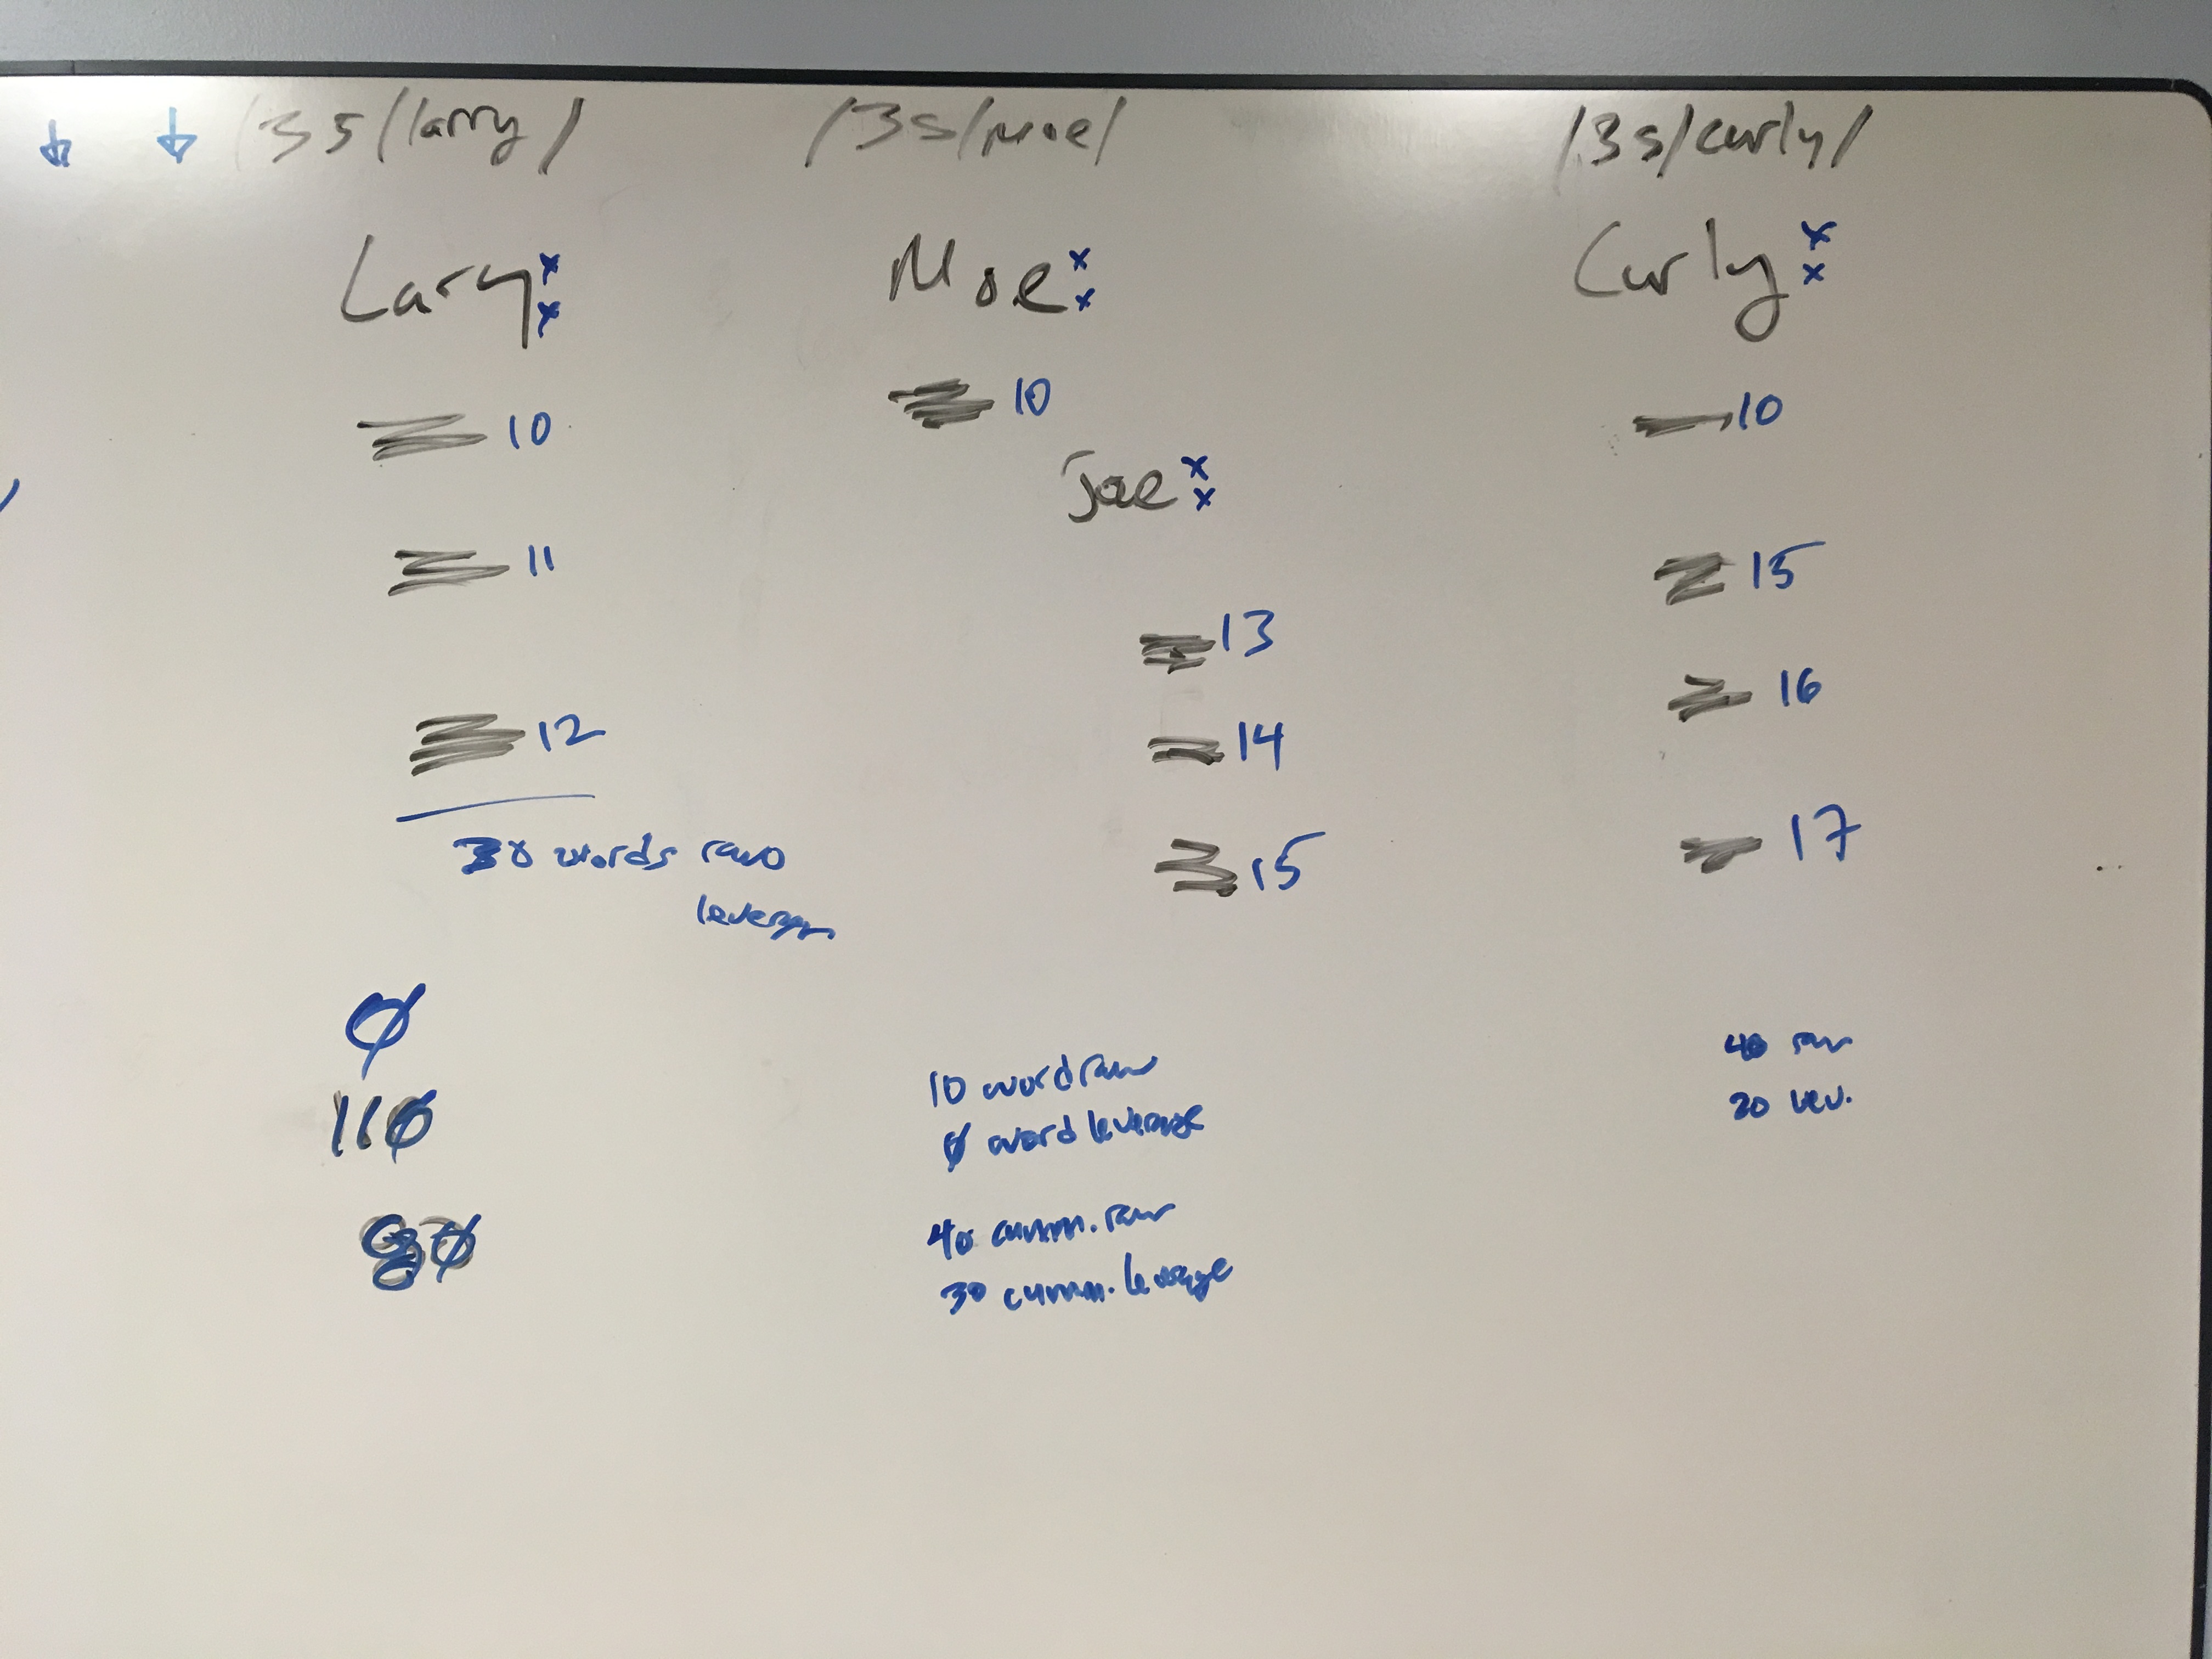 /3s/larry/
Larry x x
10
11
12
30 words raw
leverage
0
110
80
/3s/Moe/
Moe x x
10
Joe x x
13
14
15
10 word raw
0 word leverage
40 cumm. raw
30 cumm. leverage
/3s/curly/
Curly x x
10
15
16
17
40 raw
20 lev.